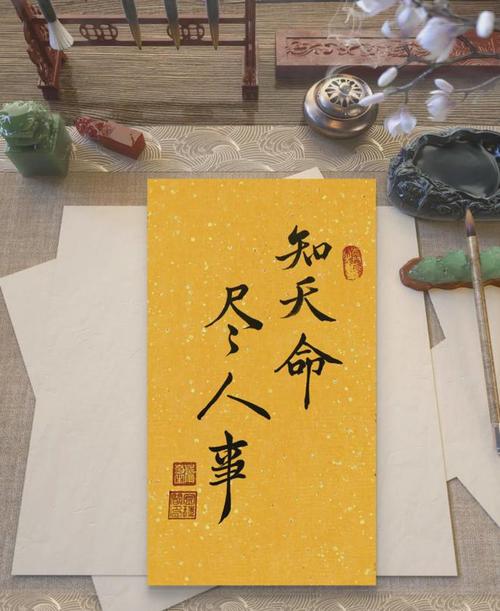 知天命
尽人事